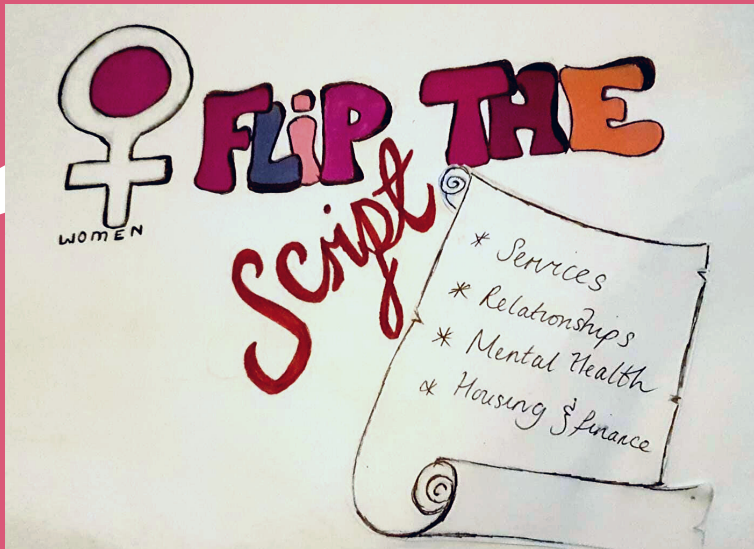 FLiP THE
Script
WOMEN
* Services
* Relationships
* Mental Health
* Housing & finance